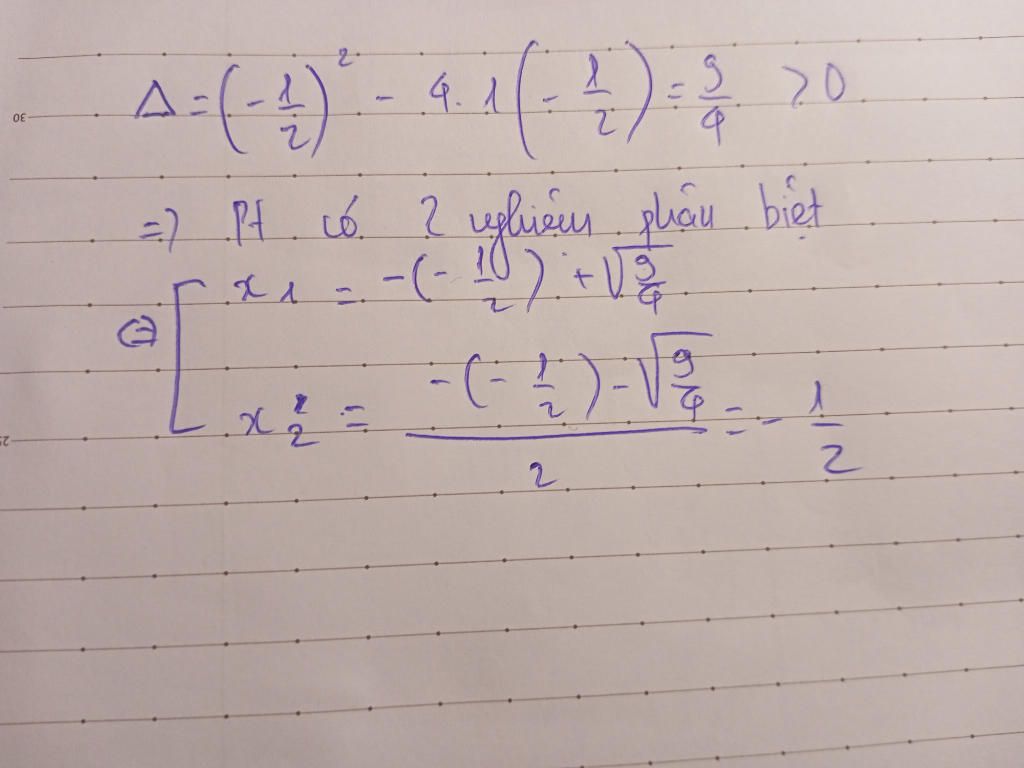 Δ = (-1/2)² - 4.1(-1/2) = 9/4 > 0
=> Pt có 2 nghiệm phân biệt
<=> [ x1 = -(-1/2) + √(9/4)
x2 = (-(-1/2) - √(9/4))/2 = -1/2
30
25